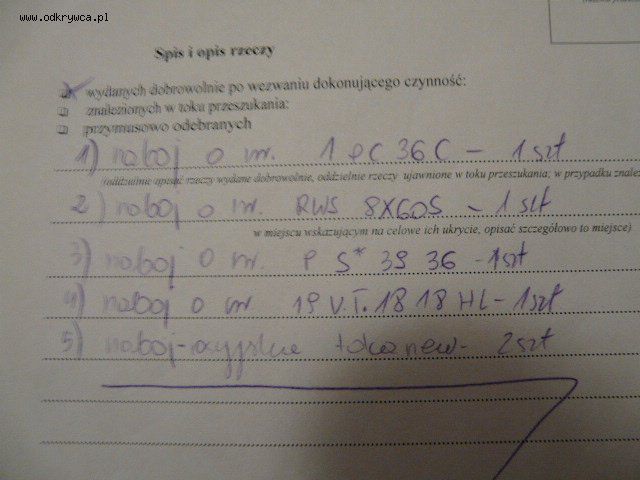 www.odkrywca.pl
Spis i opis rzeczy
wydanych dobrowolnie po wezwaniu dokonującego czynność:
znalezionych w toku przeszukania:
przymusowo odebranych
1) naboj o nr. 1 PC 36 C - 1 szt
(oddzielnie opisać rzeczy wydane dobrowolnie, oddzielnie rzeczy ujawnione w toku przeszukania; w przypadku znalez
2) naboj o nr. RWS 8X60S - 1 szt
w miejscu wskazującym na celowe ich ukrycie, opisać szczegółowo to miejsce)
3) naboj o nr. P S* 39 36 - 1 szt
4) naboj o nr 19 V.T. 18 18 HL - 1 szt
5) naboj - tokanew - 2 szt